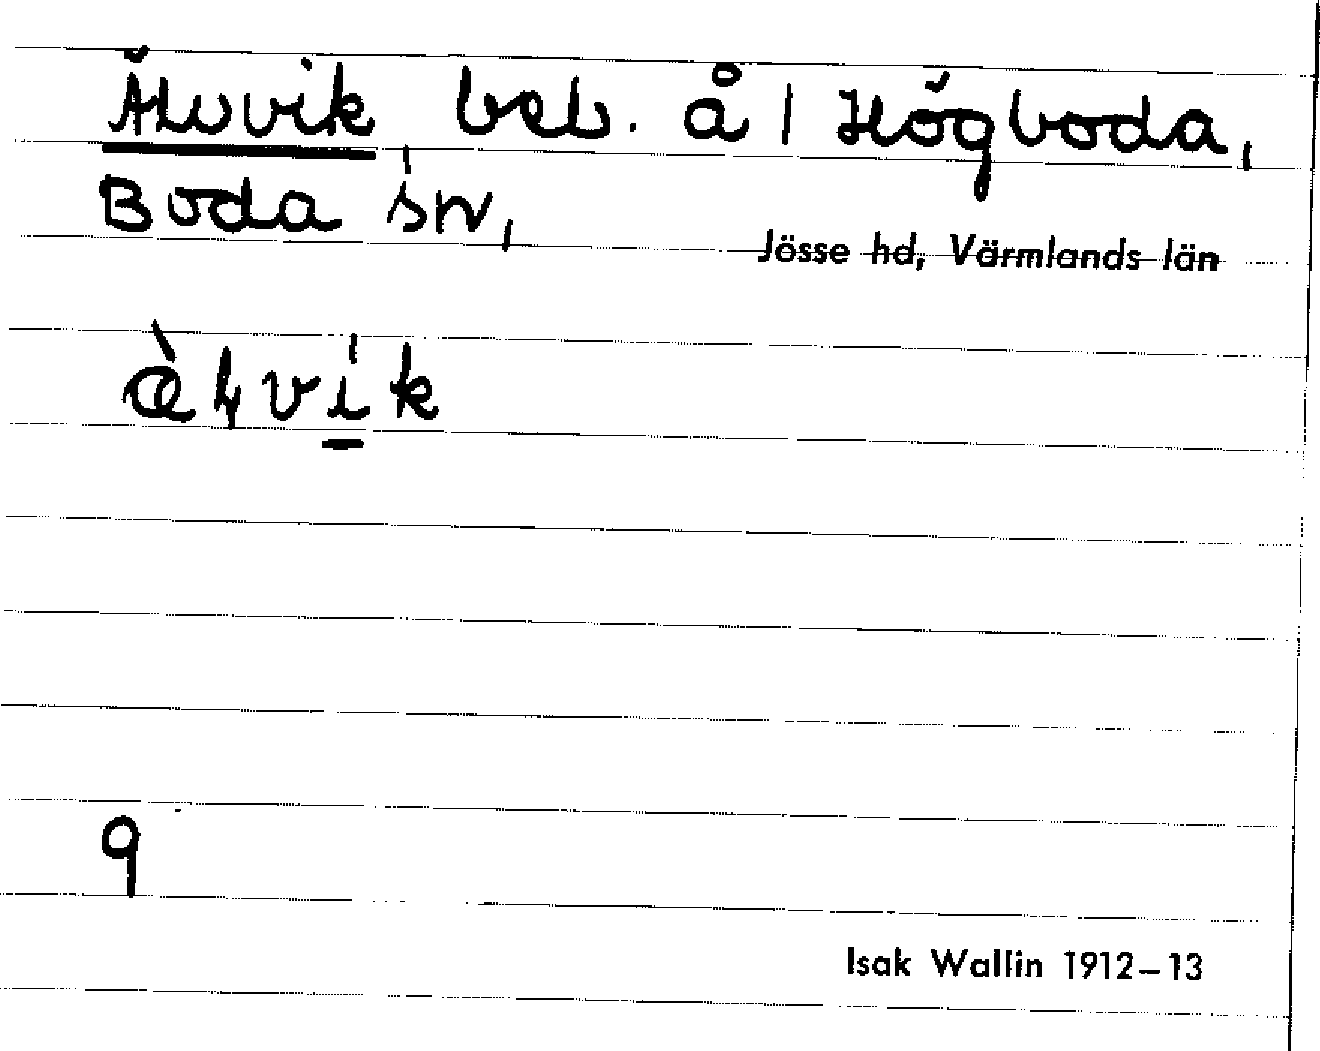 Älvvik beb. å 1 Högboda,
Boda sn,
Jösse hd, Värmlands län
9
Isak Wallin 1912–13